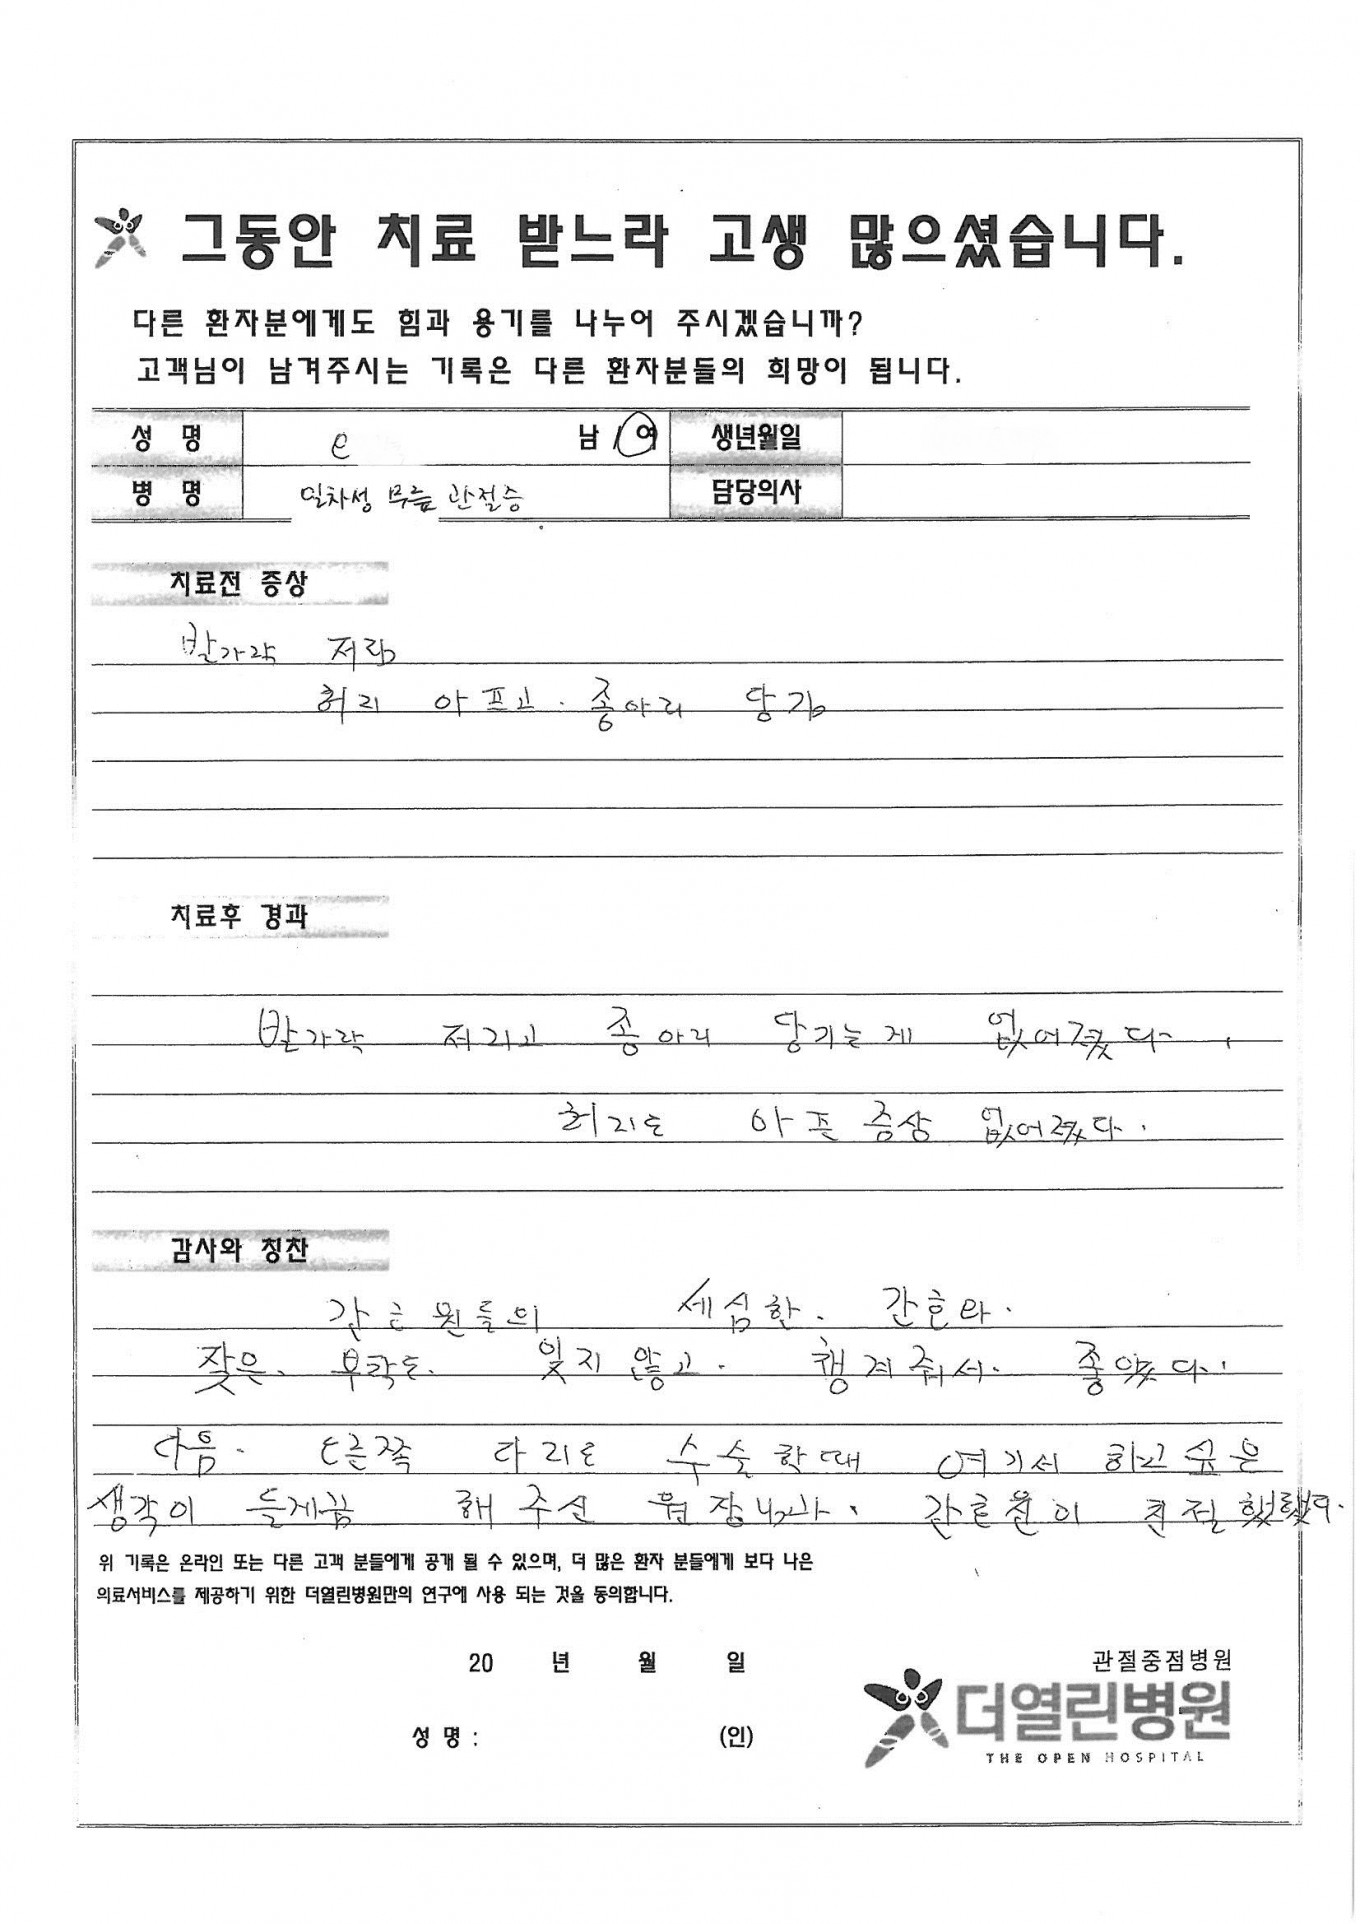 그동안 치료 받느라 고생 많으셨습니다.
다른 환자분에게도 힘과 용기를 나누어 주시겠습니까?
고객님이 남겨주시는 기록은 다른 환자분들의 희망이 됩니다.
성 명 남 / 여 생년월일
병 명 일차성 무릎 관절증 담당의사
치료전 증상
발가락 저림
허리 아프고. 종아리 당김
치료후 경과
발가락 저리고 종아리 당기는게 없어졌다.
허리도 아픈 증상 없어졌다.
감사와 칭찬
간호원들의 세심한. 간호와.
잦은. 부탁도. 잊지 않고. 챙겨줘서. 좋았다.
다음. 다리도 수술할때 여기서 하고싶은
생각이 들게끔 해 주신 원장님과. 간호원이 친절했다.
위 기록은 온라인 또는 다른 고객 분들에게 공개 될 수 있으며, 더 많은 환자 분들에게 보다 나은
의료서비스를 제공하기 위한 더열린병원만의 연구에 사용 되는 것을 동의합니다.
20 년 월 일
관절중점병원
더열린병원
성 명 : (인)
THE OPEN HOSPITAL